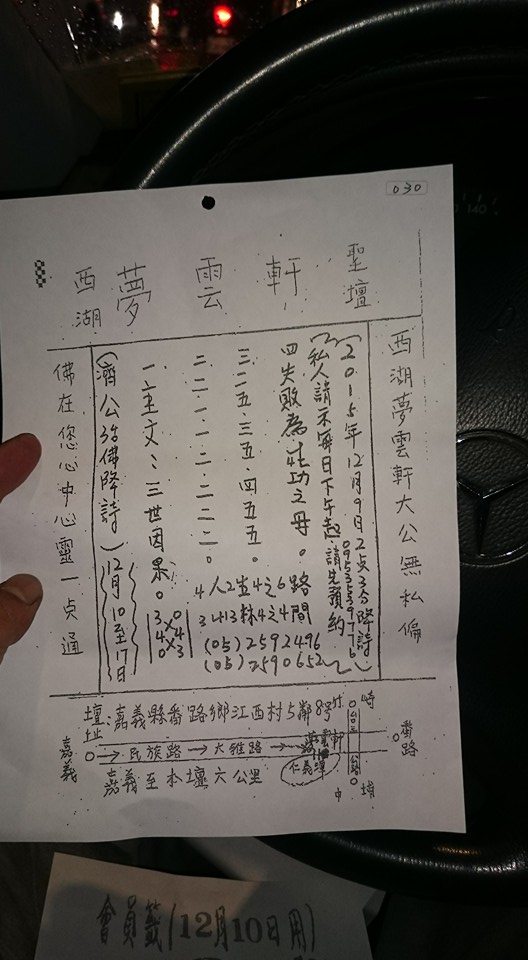 030
西湖夢雲軒聖壇
西湖夢雲軒大公無私偏
(2015年12月9日2点3分降詩)
(私人請示每日下午起請先預約
四失敗為成功之母。
三.二五.三五.四五五。
二.二.一.一.二.二.二.二。
一.主文:三世因果。
(濟公活佛降詩)12月10至17日
佛在您心中心靈一貞通
(05)2592496
(05)2590652
壇址:嘉義縣番路鄉江西村5鄰8号
嘉義 → 民族路 → 大雅路 → 仁義潭
番路
嘉義至本壇六公里
會員籤(12月10日用)